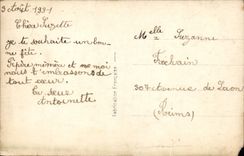 3 Août 1931
Chère Suzette
je te souhaite un bonne fête.
Pépère mémère et moi
nous t'embrassons de
tout cœur.
ta sœur
Antoinette
Fabrication Française
Melle Suzanne
307 avenue de Laon
Reims